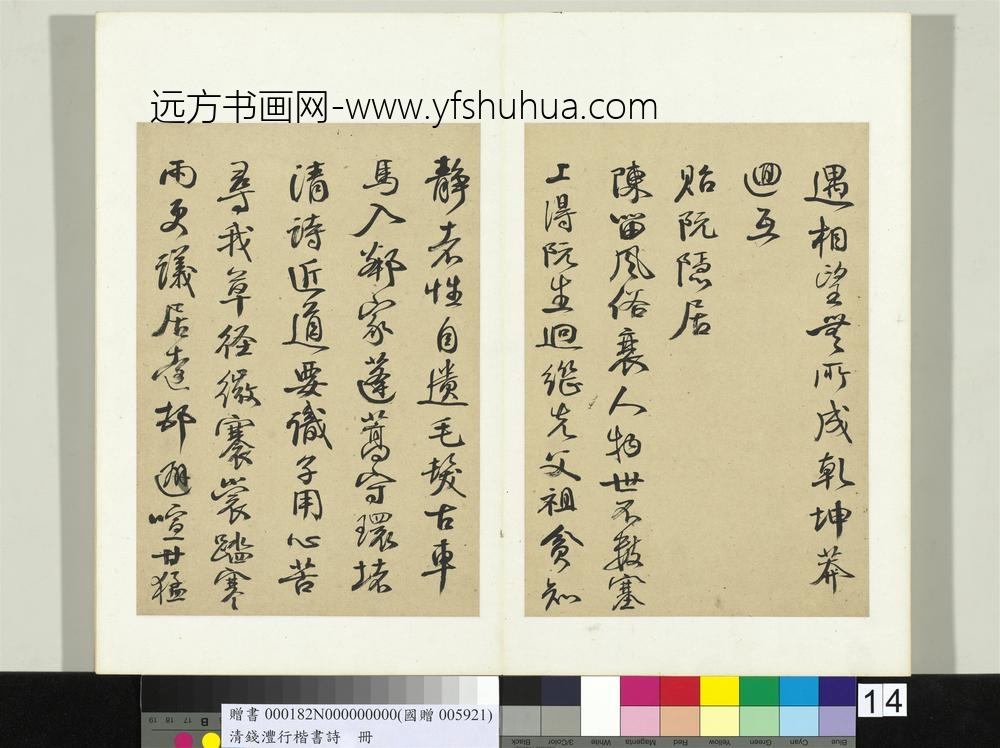 远方书画网-www.yfshuhua.com
遇相望無所成乾坤莽
迴互
貽阮隱居
陳留風俗衰人物世不數塞
上得阮生迥繼先父祖貧知
靜者性自遺毛髮古車
馬入鄰家蓬蒿守環堵
清詩近道要識子用心苦
尋我草徑微褰裳踏寒
雨更議居遠邨避喧甘猛
14
贈書 000182N000000000(國贈 005921)
清錢灃行楷書詩 冊
Blue Cyan Green Yellow Red Magenta White 3/Color Black
B 17 18 19